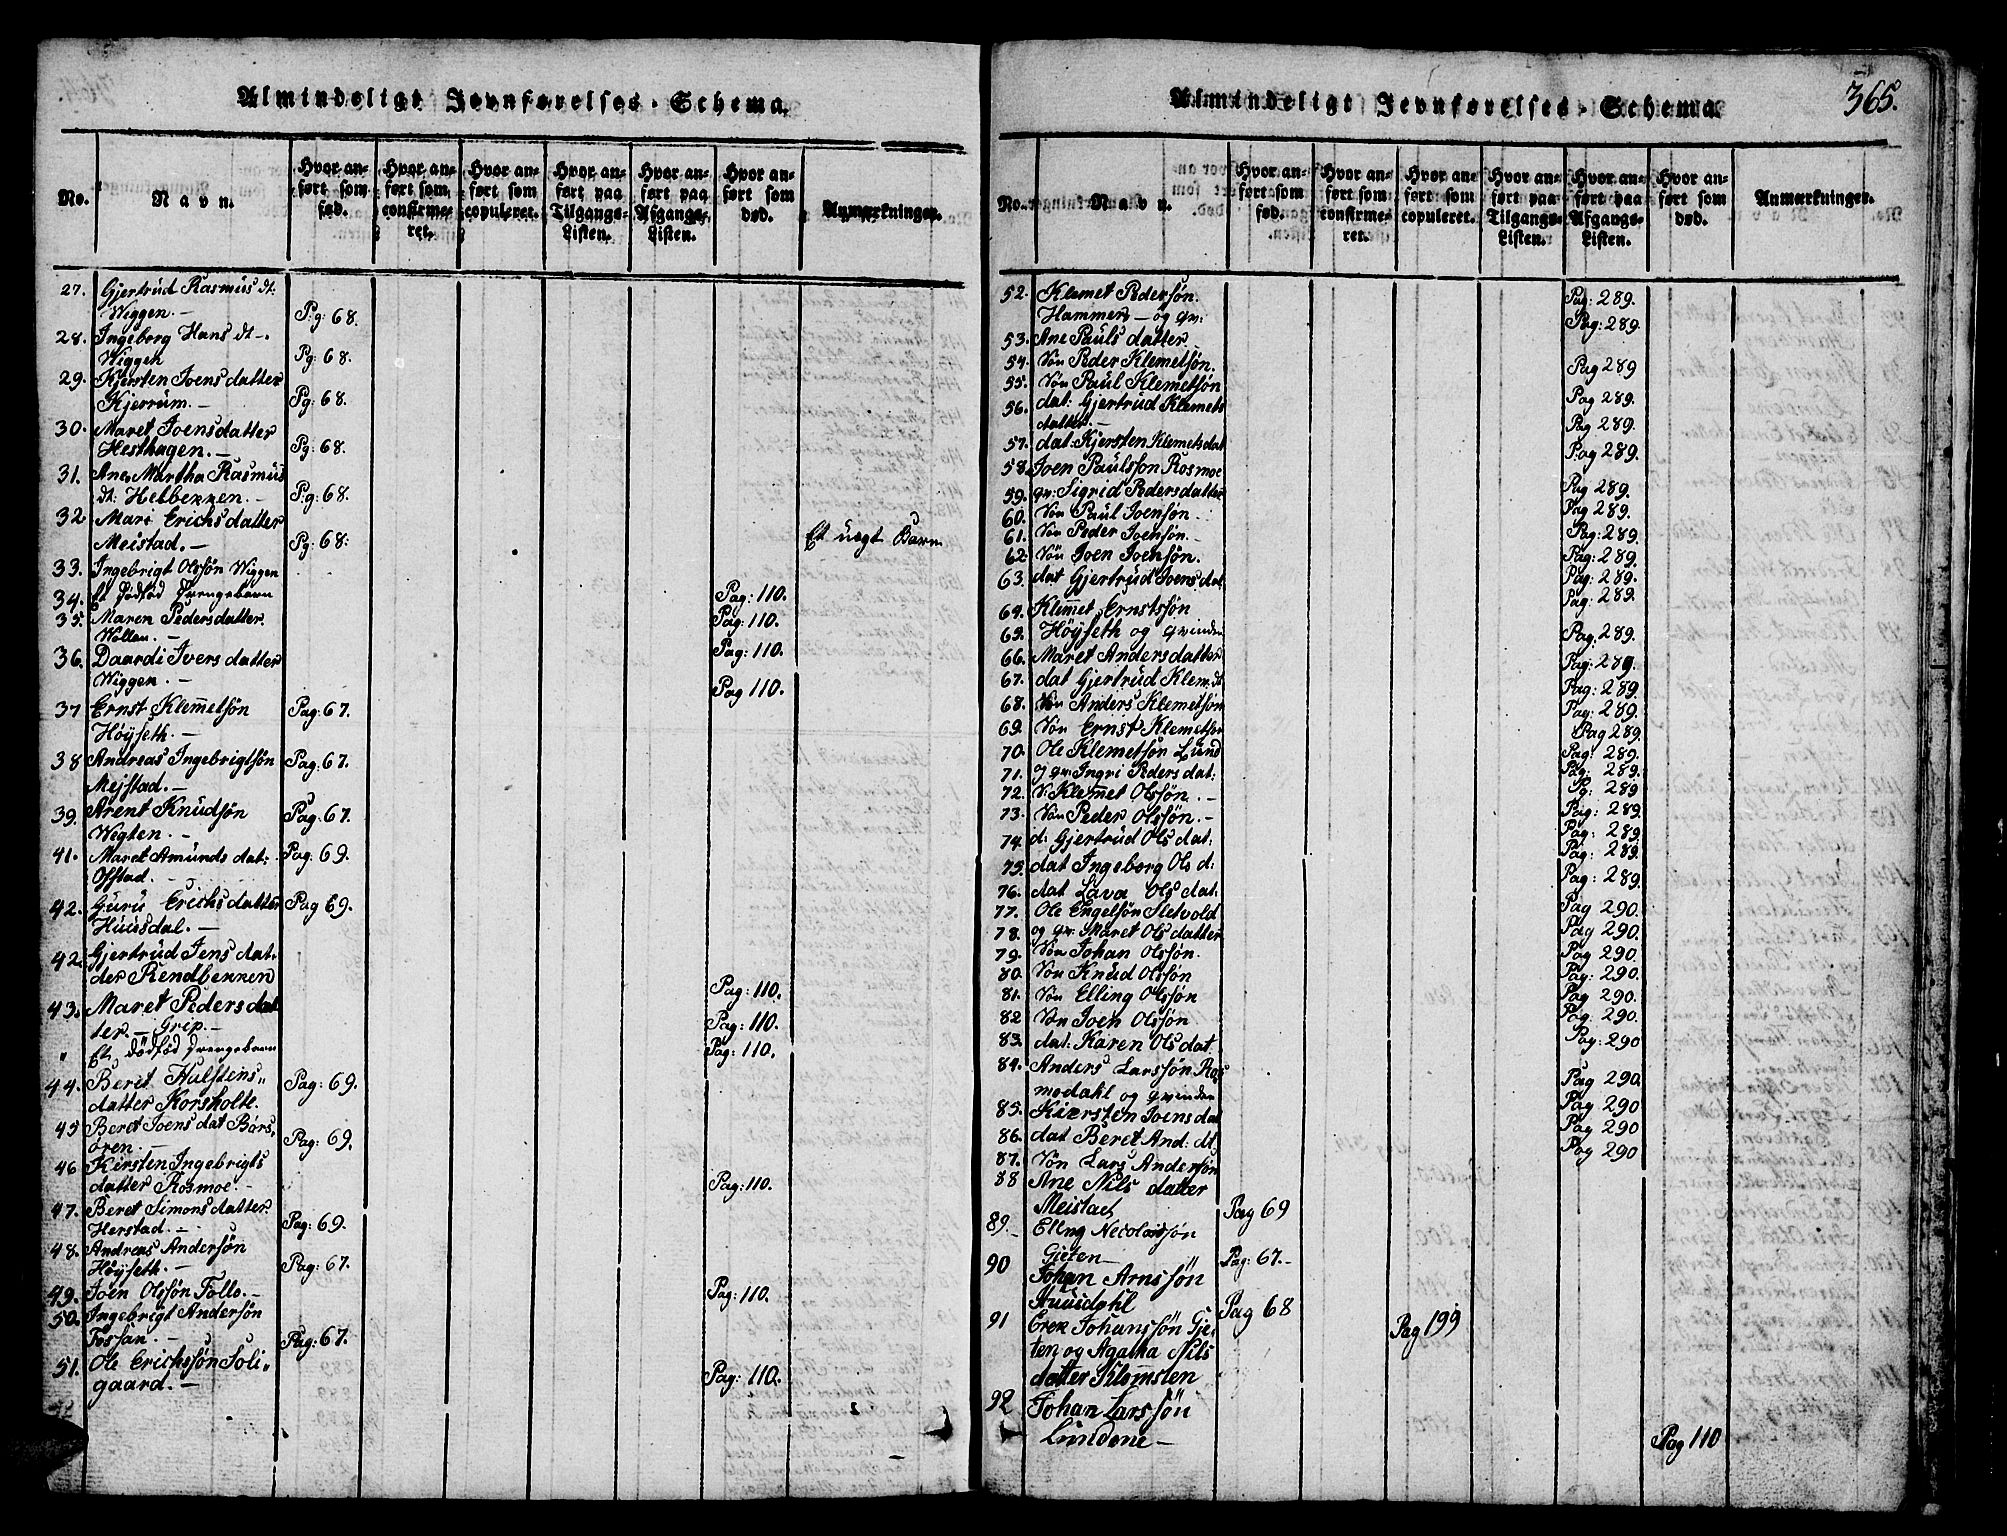 Almindeligt Jevnførelses-Schema.
No.
Navn.
Hvor anført som fød.
Hvor anført som confirmeret.
Hvor anført som copuleret.
Hvor anført paa Tilgangs-Listen.
Hvor anført paa Afgangs-Listen.
Hvor anført som død.
Anmærkninger.
27. Gjertrud Rasmus dt:
Wiggen.— Pg: 68.
28. Ingeborg Hans dt—.
Wiggen Pg: 68.
29. Kjersten Joens datter
Kjerrum.— Pg: 68.
30. Maret Joensdatter
Hesthagen.— Pg: 68.
31. Ane Martha Rasmus
dt: Helbekken.— Pg: 68.
32 Mari Erichsdatter
Meistad.— Pg: 68: Et uægt Barn
33. Ingebrigt Olssøn Wiggen Pag: 110.
34. Et dödfød Drengebarn Pag: 110.
35. Maren Pedersdatter.
Wollan.— Pag: 110.
36. Daardi Ivers datter
Wiggen.— Pag 110.
37 Ernst Klemetsøn Pag: 67.
Höyseth.—
38 Andreas Ingebrigtsøn Pag: 67.
Mejstad.—
39. Arent Knudsøn Pag: 67.
Wigten.—
41. Maret Amunds dat: Pag: 69.
Ofstad.—
42. Guru Erichsdatter Pag 69.
Huusdal.—
42. Gjertrud Jens dat-
der Rendbekken Pag: 110.
43. Maret Peders dat
ter.— Grip.— Pag: 110.
" Et dödfød Drengebarn Pag: 110.
44. Beret Hulstens" Pag: 69.
datter Korsholte.
45 Beret Joens dat Börs-
ören.— Pag: 69.
46 Kirsten Ingebrigts
datter Rosmoe.— Pag: 110.
47. Beret Simonsdatter
Herstad.— Pag: 69.
48. Andreas Andersøn
Höyseth.— Pag: 67.
49. Joen Olssøn Follo.— Pag: 110.
50. Ingebrigt Andersøn
Fossan.— Pag: 67.
51. Ole Erichssøn Soli"
gaard.— Pag: 110.
Almindeligt Jevnførelses-Schema.
365.
No.
Navn.
Hvor anført som fød.
Hvor anført som confirmeret.
Hvor anført som copuleret.
Hvor anført paa Tilgangs-Listen.
Hvor anført paa Afgangs-Listen.
Hvor anført som død.
Anmærkninger.
52. Klemet Pedersön. Pag: 289.
Hammer— og qv: Pag: 289.
53. Ane Pauls datter
54. Sön Peder Klemetsön. Pag 289
55. Sön Paul Klemetsön Pag 289.
56. dat: Gjertrud Klemets
datter.— Pag 289.
57. dat: Kjersten Klemetsdat Pag 289.
58. Joen Paulsson Rosmoe Pag 289.
59. qv: Sigrid Pedersdatter Pag 289.
60. Sön Paul Joensøn Pag: 289.
61. Sön Peder Joensön.— Pag: 289.
62. Sön Joen Joensøn. Pag: 289.
63. dat Gjertrud Joens dat Pag: 289.
64. Klemet Ernstsøn
65. Höyseth og Qvinden Pag: 289.
66. Maret Andersdatter Pag: 289.
67. dat Gjertrud Klem. dt Pag: 289.
68. Sön Anders Klemetsøn Pag: 289.
69. Sön Ernst Klemetsøn Pag 289.
70. Ole Klemetsøn Lund Pag: 289.
71. og qv: Ingri Peders dat: Pag: 289.
72. S. Klemet Olsøn.— Pg: 289
73. Sön Peder Olssøn.— Pag: 289.
74. d: Gjertrud Ols dat: Pag: 289.
75. dat Ingeborg Ols d: Pag: 289.
76. dat Lava Ols dat: Pag: 289.
77. Ole Engelsøn Sletvold Pag 290.
78. og qv: Maret Ols datter Pag 290.
79. Sön Johan Olssøn. Pag 290.
80. Sön Knud Olssøn Pag: 290.
81. Sön Elling Olssøn Pag 290.
82 Sön Joen Olssøn Pag: 290.
83. dat: Karen Ols dat. Pag: 290
84. Anders Larssøn Ros
modahl og Qvinden Pag 290.
85. Kiersten Joens dat Pag 290
86. dat Beret And: dt Pag 290
87. Sön Lars Andersøn Pag 290
88 Ane Nils datter
Meistad Pag 69
89. Elling Necolaisøn
Gieten Pag: 67.—
90 Johan Arnssøn
Huusdahl Pag 68
91 Erek Johanssøn Gje- Pag 199
ten og Agatha Nils
datter Klomsten
92 Johan Larssøn
Lundene— Pag 110